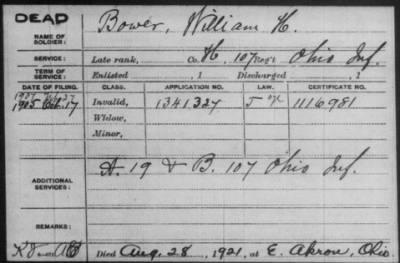 DEAD
NAME OF SOLDIER: Bower, William H.
SERVICE: Late rank, Co. H, 107 Reg't Ohio Inf.
TERM OF SERVICE: Enlisted , 1 Discharged , 1
DATE OF FILING. CLASS. APPLICATION NO. LAW. CERTIFICATE NO.
1905 Oct. 17 Invalid, 1341327 1116981
Widow,
Minor,
ADDITIONAL SERVICES: A. 19 & B. 107 Ohio Inf.
REMARKS:
Died Aug. 28, 1921, at E. Akron, Ohio.